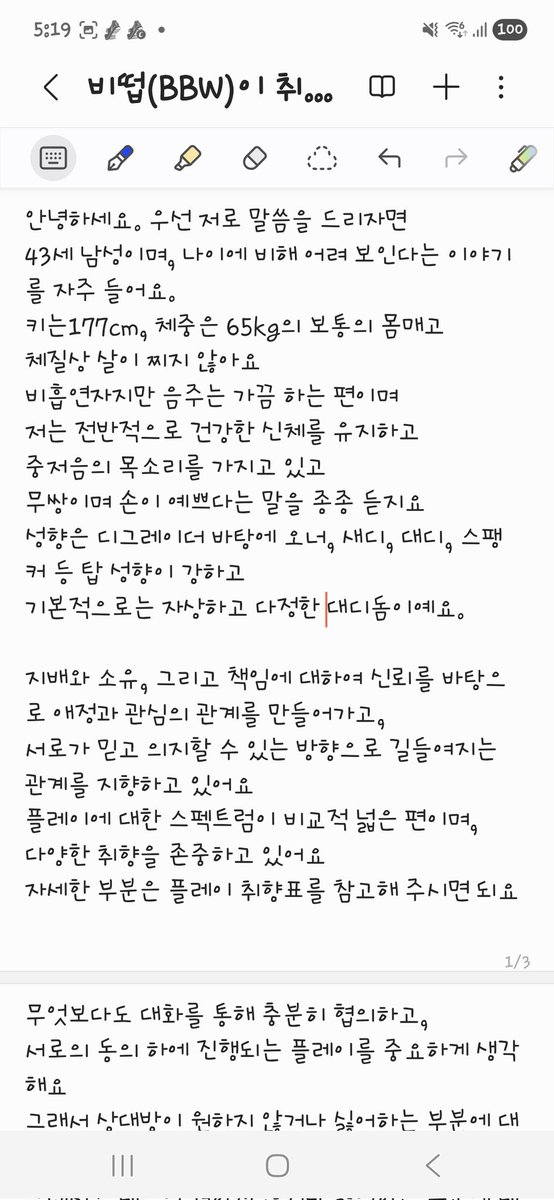 5:19
100
비떱(BBW)이 취...
안녕하세요. 우선 저로 말씀을 드리자면
43세 남성이며, 나이에 비해 어려 보인다는 이야기
를 자주 들어요.
키는177cm, 체중은 65kg의 보통의 몸매고
체질상 살이 찌지 않아요
비흡연자지만 음주는 가끔 하는 편이며
저는 전반적으로 건강한 신체를 유지하고
중저음의 목소리를 가지고 있고
무쌍이며 손이 예쁘다는 말을 종종 듣지요
성향은 디그레이더 바탕에 오너, 새디, 대디, 스팽
커 등 탑 성향이 강하고
기본적으로는 자상하고 다정한 대디돔이예요.
지배와 소유, 그리고 책임에 대하여 신뢰를 바탕으
로 애정과 관심의 관계를 만들어가고,
서로가 믿고 의지할 수 있는 방향으로 길들여지는
관계를 지향하고 있어요
플레이에 대한 스펙트럼이 비교적 넓은 편이며,
다양한 취향을 존중하고 있어요
자세한 부분은 플레이 취향표를 참고해 주시면 되요
1/3
무엇보다도 대화를 통해 충분히 협의하고,
서로의 동의 하에 진행되는 플레이를 중요하게 생각
해요
그래서 상대방이 원하지 않거나 싫어하는 부분에 대